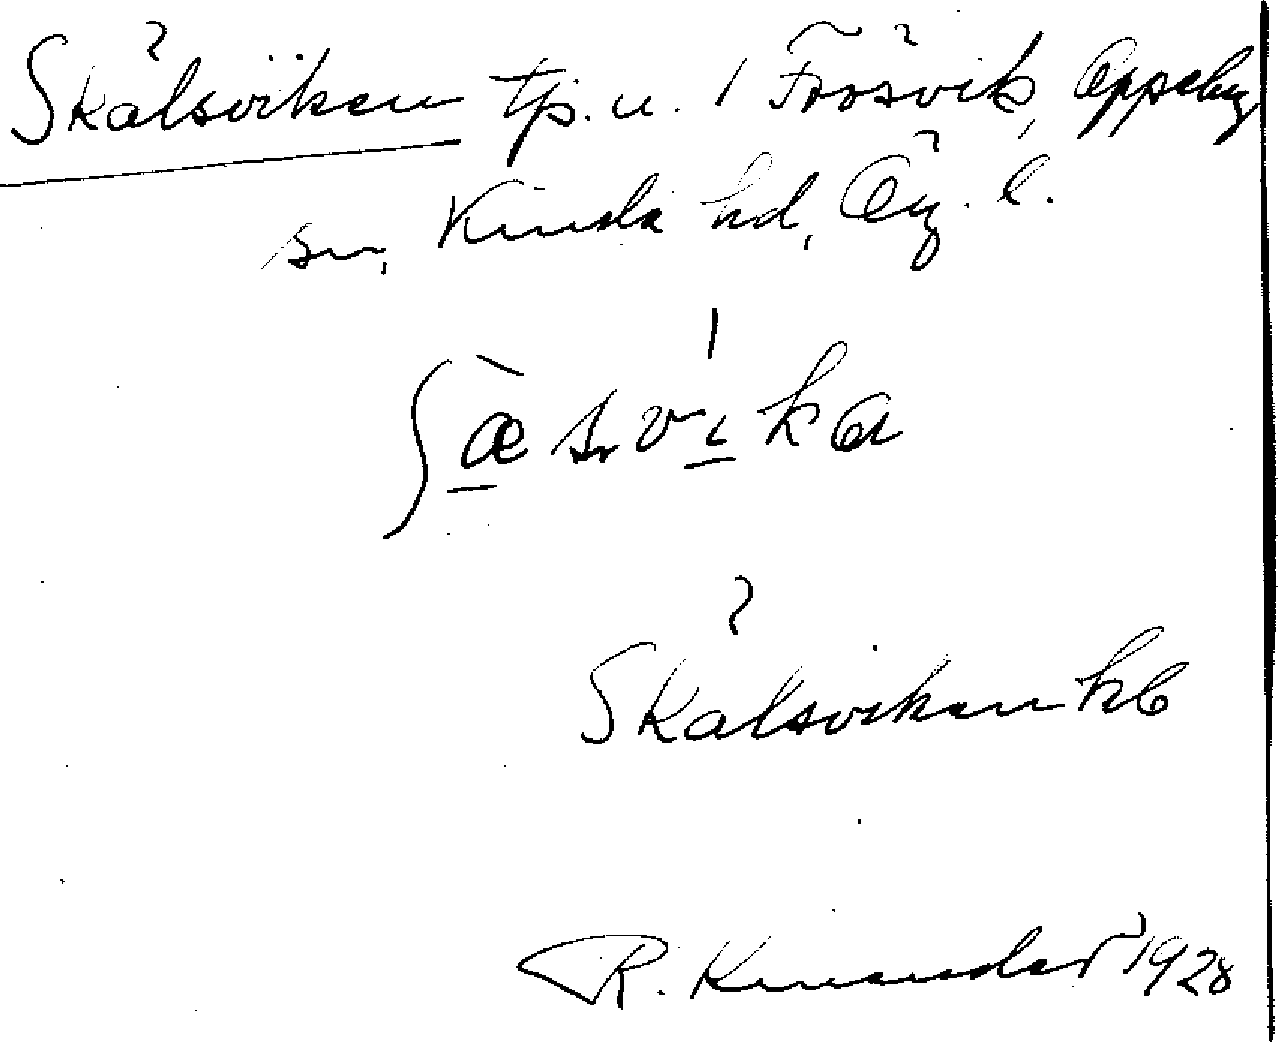 Skälsviken tp. u. / Frösvik, Oppeby
sn, Kinda hd, Ög. l.
ʃæ̀svíka
Skälsviken kb
R. 1928